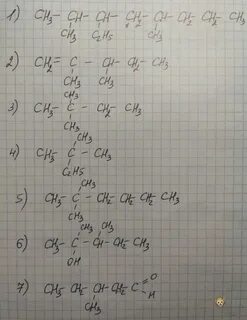 1) CH₃ - CH - CH - CH₂ - CH - CH₂ - CH₂ - CH₃
CH₃ C₂H₅ CH₃
2) CH₂ = C - CH - CH₂ - CH₃
CH₃ CH₃
CH₃
3) CH₃ - C - CH₂ - CH₃
CH₃
CH₃
4) CH₃ - C - CH₃
C₂H₅
CH₃
5) CH₃ - C - CH₂ - CH₂ - CH₂ - CH₃
CH₃
CH₃ CH₃
6) CH₃ - C - CH - CH₂ - CH₃
OH
O
7) CH₃ - CH₂ - CH - CH₂ - C
CH₃ H